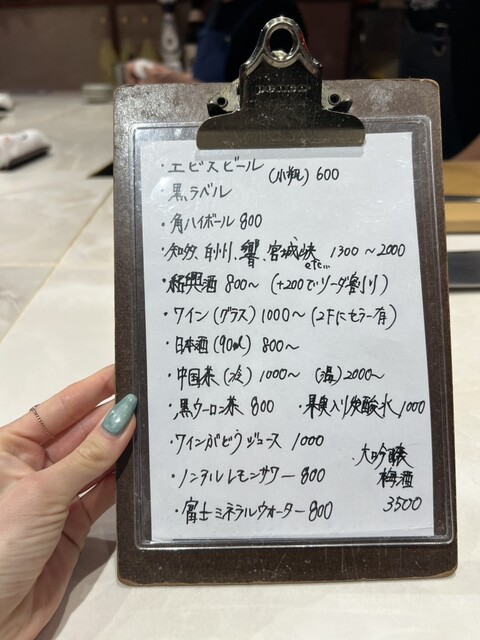 ・エビスビール
(小瓶) 600
・黒ラベル
・角ハイボール 800
・知多、白州、響、宮城峡 1300～2000
etc...
・紹興酒 800～ (+200でソーダ割り)
・ワイン(グラス) 1000～ (2Fにセラー有)
・日本酒(90ml) 800～
・中国茶(冷) 1000～ (温) 2000～
・黒ウーロン茶 800 ・果臭入り炭酸水 1000
・ワインぶどうジュース 1000
・ノンアルレモンサワー 800
・富士ミネラルウォーター 800
大吟醸
梅酒
3500